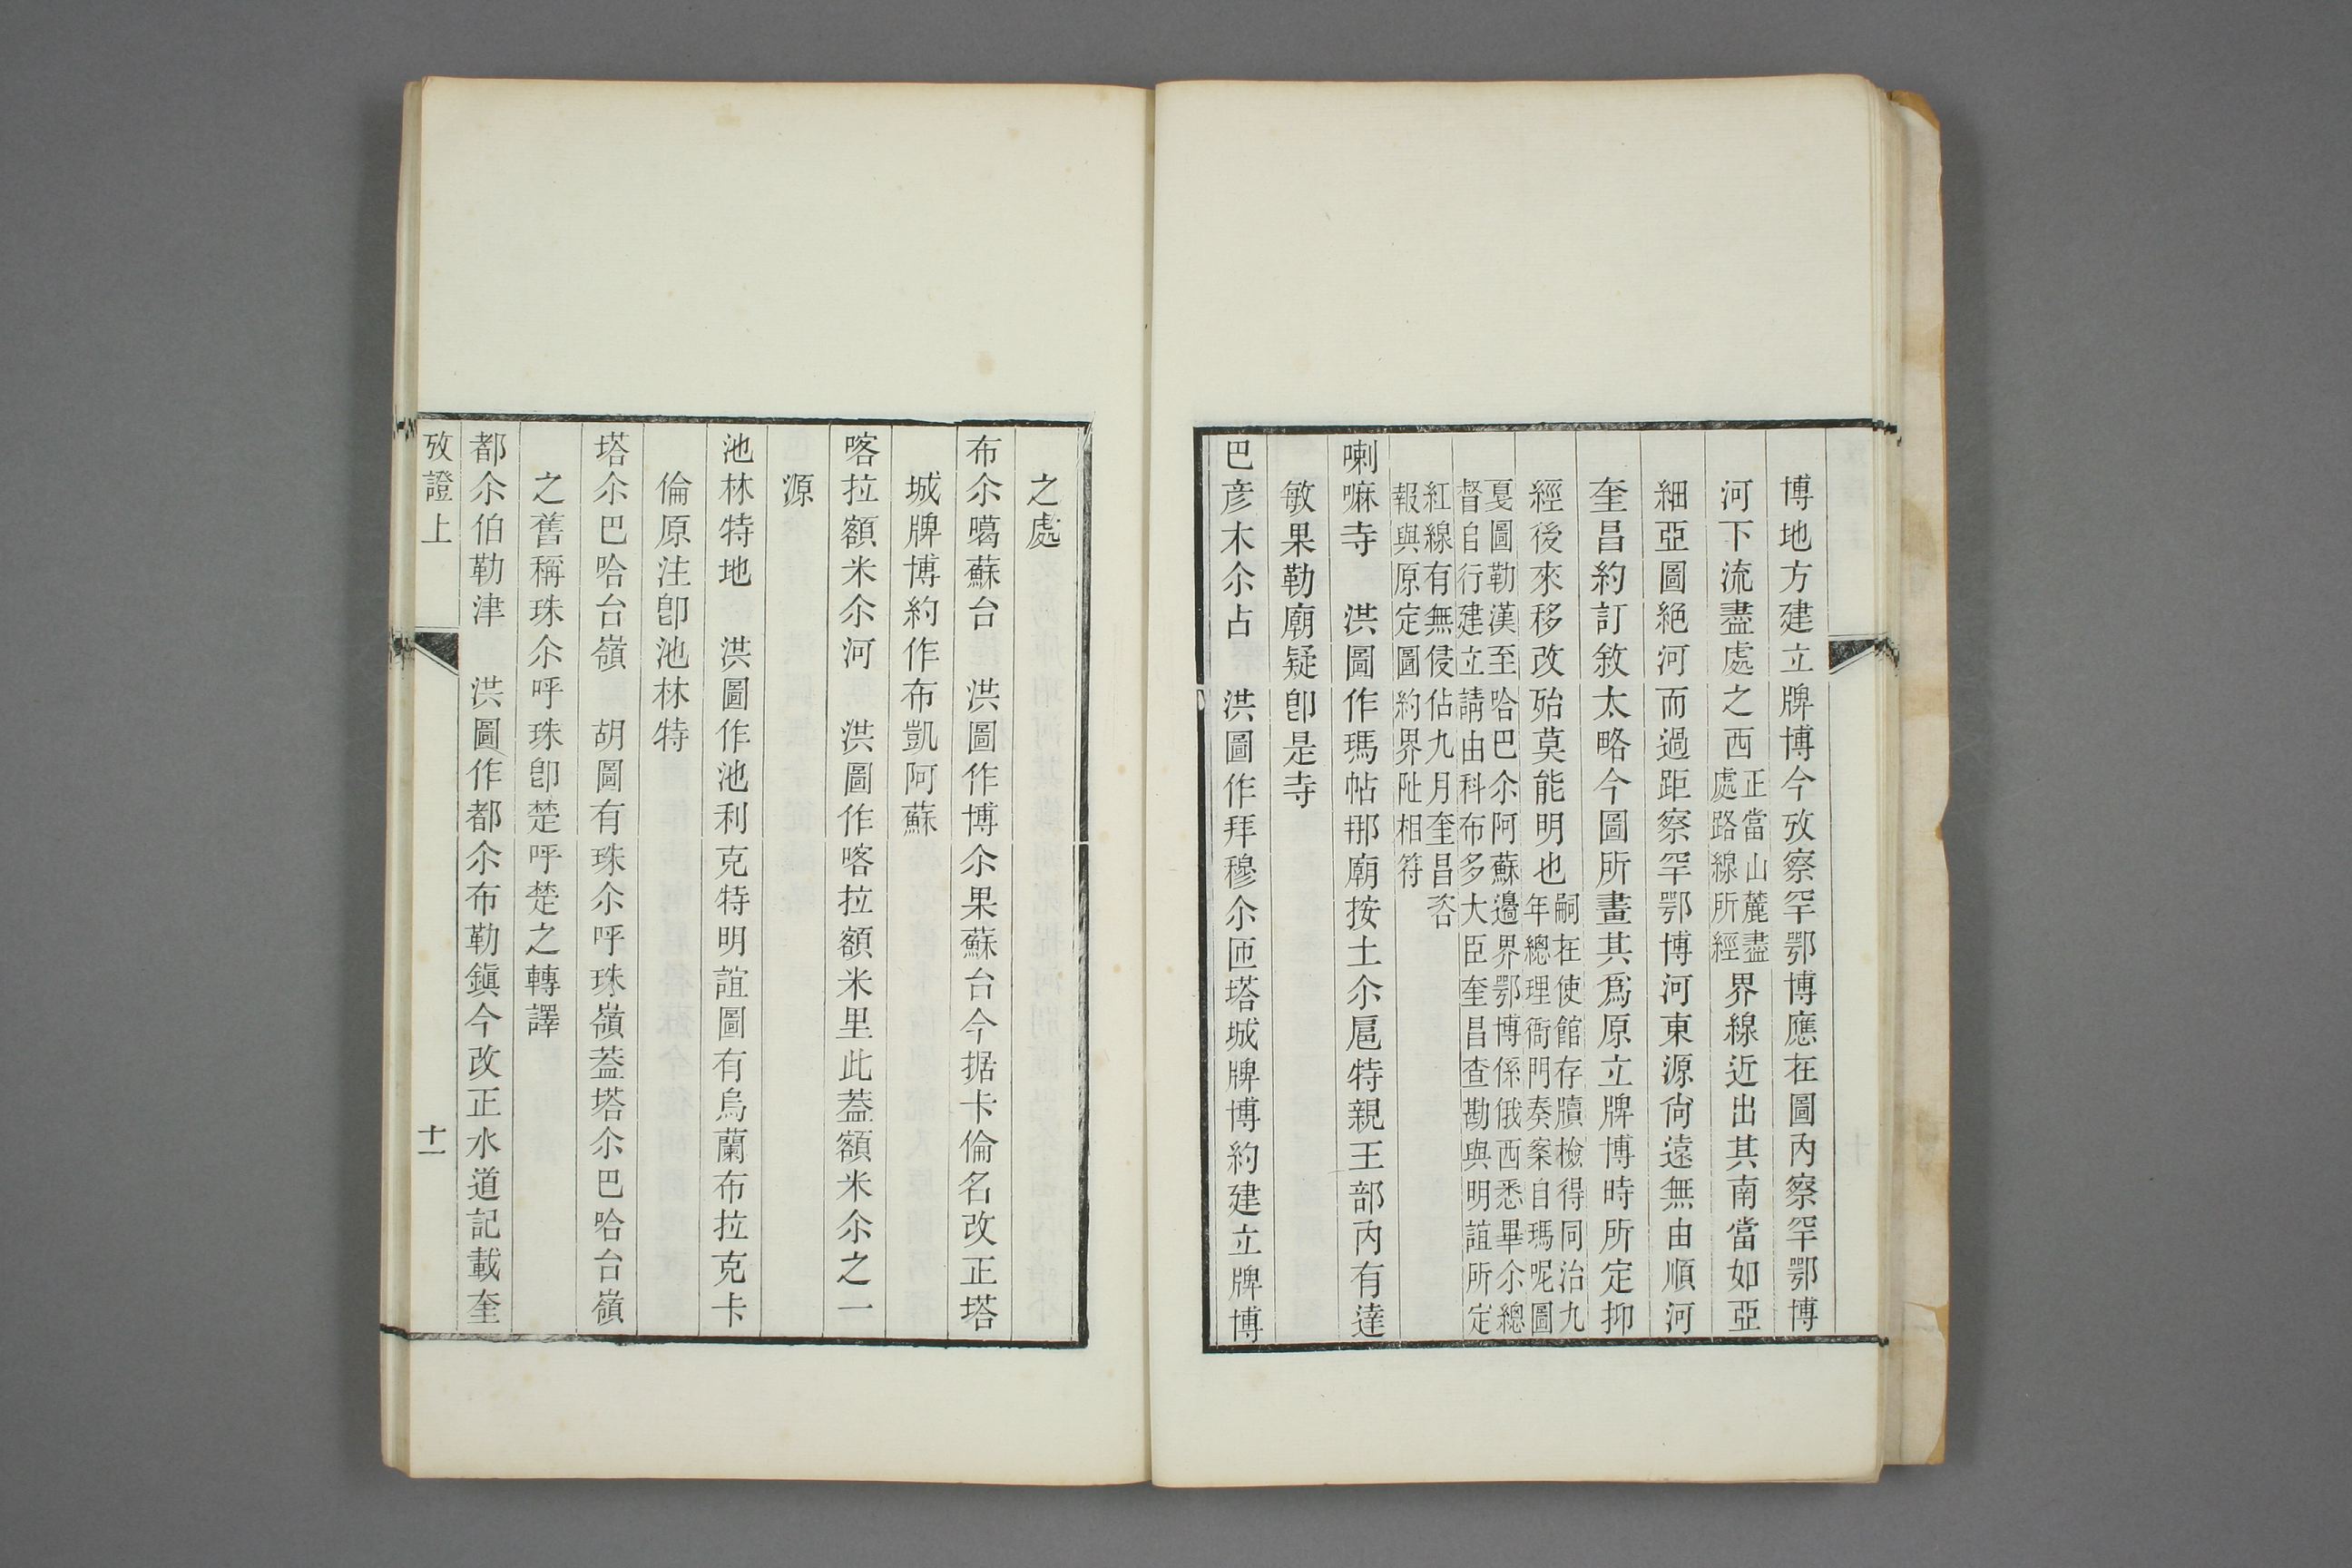 博地方建立牌博今攷察罕鄂博應在圖內察罕鄂博
河下流盡處之西正當山麓盡處路線所經界線近出其南當如亞
細亞圖絕河而過距察罕鄂博河東源尙遠無由順河
奎昌約訂敘太略今圖所畫其爲原立牌博時所定抑
經後來移改殆莫能明也嗣在使館存牘檢得同治九年總理衙門奏案自瑪呢圖
戛圖勒漢至哈巴尒阿蘇邊界鄂博係俄西悉畢尒總督自行建立請由科布多大臣奎昌查勘與明誼所定
紅線有無侵佔九月奎昌咨報與原定圖約界阯相符
喇嘛寺　洪圖作瑪帖那廟按土尒扈特親王部內有達
敏果勒廟疑卽是寺
巴彥木尒占　洪圖作拜穆尒匝塔城牌博約建立牌博
之處
布尒噶蘇台　洪圖作博尒果蘇台今据卡倫名改正塔
城牌博約作布凱阿蘇
喀拉額米尒河　洪圖作喀拉額米里此葢額米尒之一
源
池林特地　洪圖作池利克特明誼圖有烏蘭布拉克卡
倫原注卽池林特
塔尒巴哈台嶺　胡圖有珠尒呼珠嶺葢塔尒巴哈台嶺
之舊稱珠尒呼珠卽楚呼楚之轉譯
都尒伯勒津　洪圖作都尒布勒鎭今改正水道記載奎
攷證上　十一